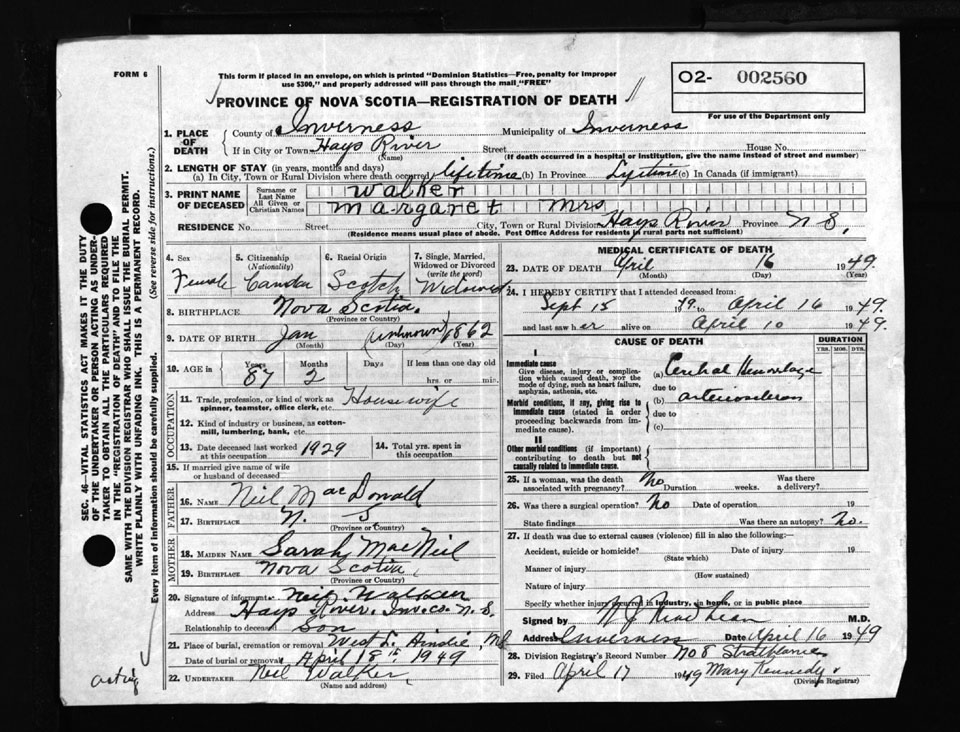 FORM 6
This form if placed in an envelope, on which is printed "Dominion Statistics—Free, penalty for improper
use $300," and properly addressed will pass through the mail "FREE"
O2- 002560
For use of the Department only
PROVINCE OF NOVA SCOTIA—REGISTRATION OF DEATH
1. PLACE OF DEATH { County of Inverness Municipality of Inverness
If in City or Town Hays River Street House No.
(Name) (If death occurred in a hospital or institution, give the name instead of street and number)
2. LENGTH OF STAY (in years, months and days)
(a) In City, Town or Rural Division where death occurred lifetime (b) In Province Lifetime (c) In Canada (if immigrant)
3. PRINT NAME OF DECEASED { Surname or Last Name Walker
All Given or Christian Names Margaret Mrs
RESIDENCE No. Street City, Town or Rural Division Hays River Province N S,
(Residence means usual place of abode. Post Office Address for residents in rural parts not sufficient)
4. Sex Female
5. Citizenship (Nationality) Canda
6. Racial Origin Scotch
7. Single, Married, Widowed or Divorced (write the word) Widowed
8. BIRTHPLACE Nova Scotia.
(Province or Country)
9. DATE OF BIRTH Jan (unknown) 1862
(Month) (Day) (Year)
10. AGE in Years 87 Months 2 Days If less than one day old hrs. or min.
OCCUPATION
11. Trade, profession, or kind of work as spinner, teamster, office clerk, etc. Housewife
12. Kind of industry or business, as cotton-mill, lumbering, bank, etc.
13. Date deceased last worked at this occupation 1929
14. Total yrs. spent in this occupation
15. If married give name of wife or husband of deceased
FATHER
16. NAME Neil MacDonald
17. BIRTHPLACE N. S.
(Province or Country)
MOTHER
18. MAIDEN NAME Sarah MacNeil
19. BIRTHPLACE Nova Scotia
(Province or Country)
20. Signature of informant Neil Walker
Address Hays River. Inv. co. N. S
Relationship to deceased Son
21. Place of burial, cremation or removal West L. Ainslie, NS
Date of burial or removal April 18th 1949
22. UNDERTAKER Neil Walker,
(Name and address)
acting
MEDICAL CERTIFICATE OF DEATH
23. DATE OF DEATH April 16 1949.
(Month) (Day) (Year)
24. I HEREBY CERTIFY that I attended deceased from:
Sept 15 to April 16 1949.
and last saw her alive on April 10 1949.
CAUSE OF DEATH
DURATION
YRS. MOS. DYS.
I
Immediate cause
Give disease, injury or complication which caused death, not the mode of dying, such as heart failure, asphyxia, asthenia, etc.
(a) Cerebral Hemorrhage
due to
Morbid conditions, if any, giving rise to immediate cause (stated in order proceeding backwards from immediate cause).
(b) arteriosclerosis
due to
(c)
II
Other morbid conditions (if important) contributing to death but not causally related to immediate cause.
25. If a woman, was the death associated with pregnancy? No Duration weeks. Was there a delivery?
26. Was there a surgical operation? No Date of operation 19
State findings Was there an autopsy? No.
27. If death was due to external causes (violence) fill in also the following:
Accident, suicide or homicide? Date of injury 19
(State which)
Manner of injury
(How sustained)
Nature of injury
Specify whether injury occurred in industry, in home, or in public place
Signed by N J MacLean M.D.
Address Inverness Date April 16 1949
28. Division Registrar's Record Number No 8 Strathlorne
29. Filed April 17 1949 Mary Kennedy
(Division Registrar)
SEC. 46—VITAL STATISTICS ACT MAKES IT THE DUTY
OF THE UNDERTAKER OR PERSON ACTING AS UNDER-
TAKER TO OBTAIN ALL THE PARTICULARS REQUIRED
IN THE "REGISTRATION OF DEATH" AND TO FILE THE
SAME WITH THE DIVISION REGISTRAR WHO SHALL ISSUE THE BURIAL PERMIT.
WRITE PLAINLY WITH UNFADING INK. THIS IS A PERMANENT RECORD.
Every item of information should be carefully supplied. (See reverse side for instructions.)